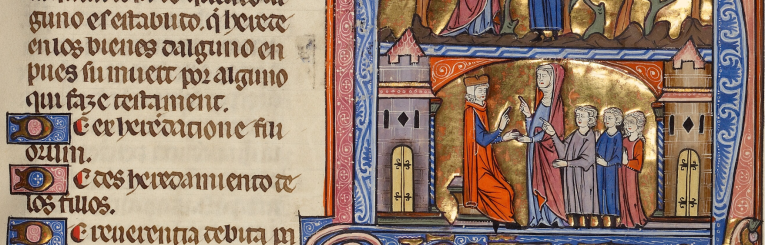 guno es estabuto, q̄ herede
en los bienes dalguno en
pues su muert por alguno
qui faze testament.
De exheredatione fili
orum.
De desheredamiento de
los fillos.
De reuerentia debita pri